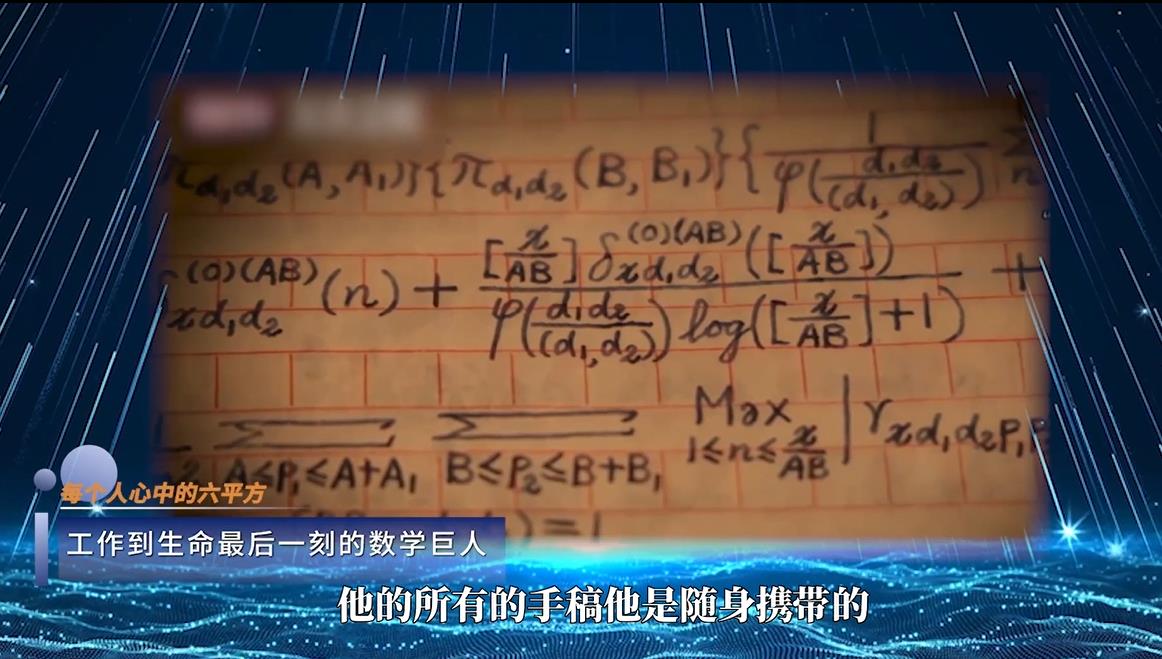 π_{d_1d_2}(A, A_1)}{π_{d_1d_2}(B, B_1)}{\frac{1}{φ(\frac{d_1d_2}{(d_1,d_2)})} Σ_n
^{(0)(AB)}_{xd_1d_2}(n) + \frac{[\frac{x}{AB}]δ^{(0)(AB)}_{xd_1d_2}([\frac{x}{AB}])}{φ(\frac{d_1d_2}{(d_1,d_2)})log([\frac{x}{AB}]+1)} +
Σ_{A≤P_1≤A+A_1} Σ_{B≤P_2≤B+B_1} Max_{1≤n≤\frac{x}{AB}} |γ_{xd_1d_2P_1
)=1
每个人心中的六平方
工作到生命最后一刻的数学巨人
他的所有的手稿他是随身携带的